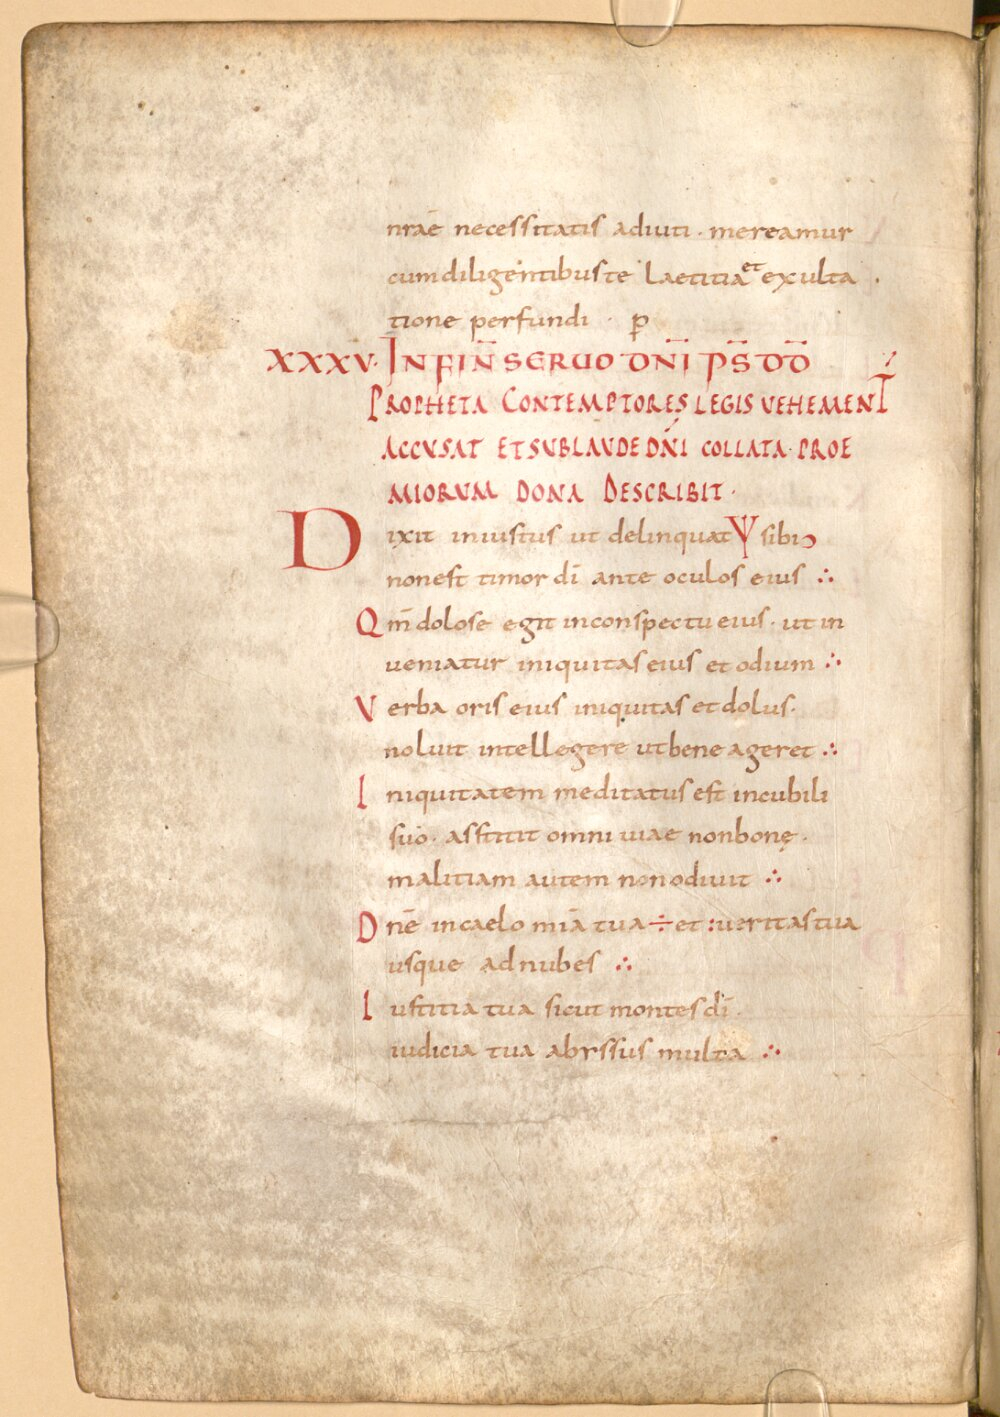 nrae necessitatis adiuti · mereamur
cum diligentibus te Laetitia et exulta
tione perfundi · p̄
XXXV· IN FIN̄ SERUO DN̄I PS̄ DD̄
PROPHETA CONTEMPTORES LEGIS VEHEMENT̄
ACCVSAT ET SVB LAVDE DN̄I COLLATA · PROE
MIORVM DONA DESCRIBIT ·
Dixit iniustus ut delinquat Ψ sibi
non est timor dī ante oculos eius ∴
Qm̄ dolose egit in conspectu eius · ut in
ueniatur iniquitas eius et odium ∴
Verba oris eius iniquitas et dolus ·
noluit intellegere ut bene ageret ∴
Iniquitatem meditatus est in cubili
suo · asstitit omni uiae non bonę ·
malitiam autem non odiuit ∴
Dn̄e in caelo mīa tua ÷ et : ueritas tua
usque ad nubes ∴
Iustitia tua sicut montes dī ·
iudicia tua abyssus multa ∴